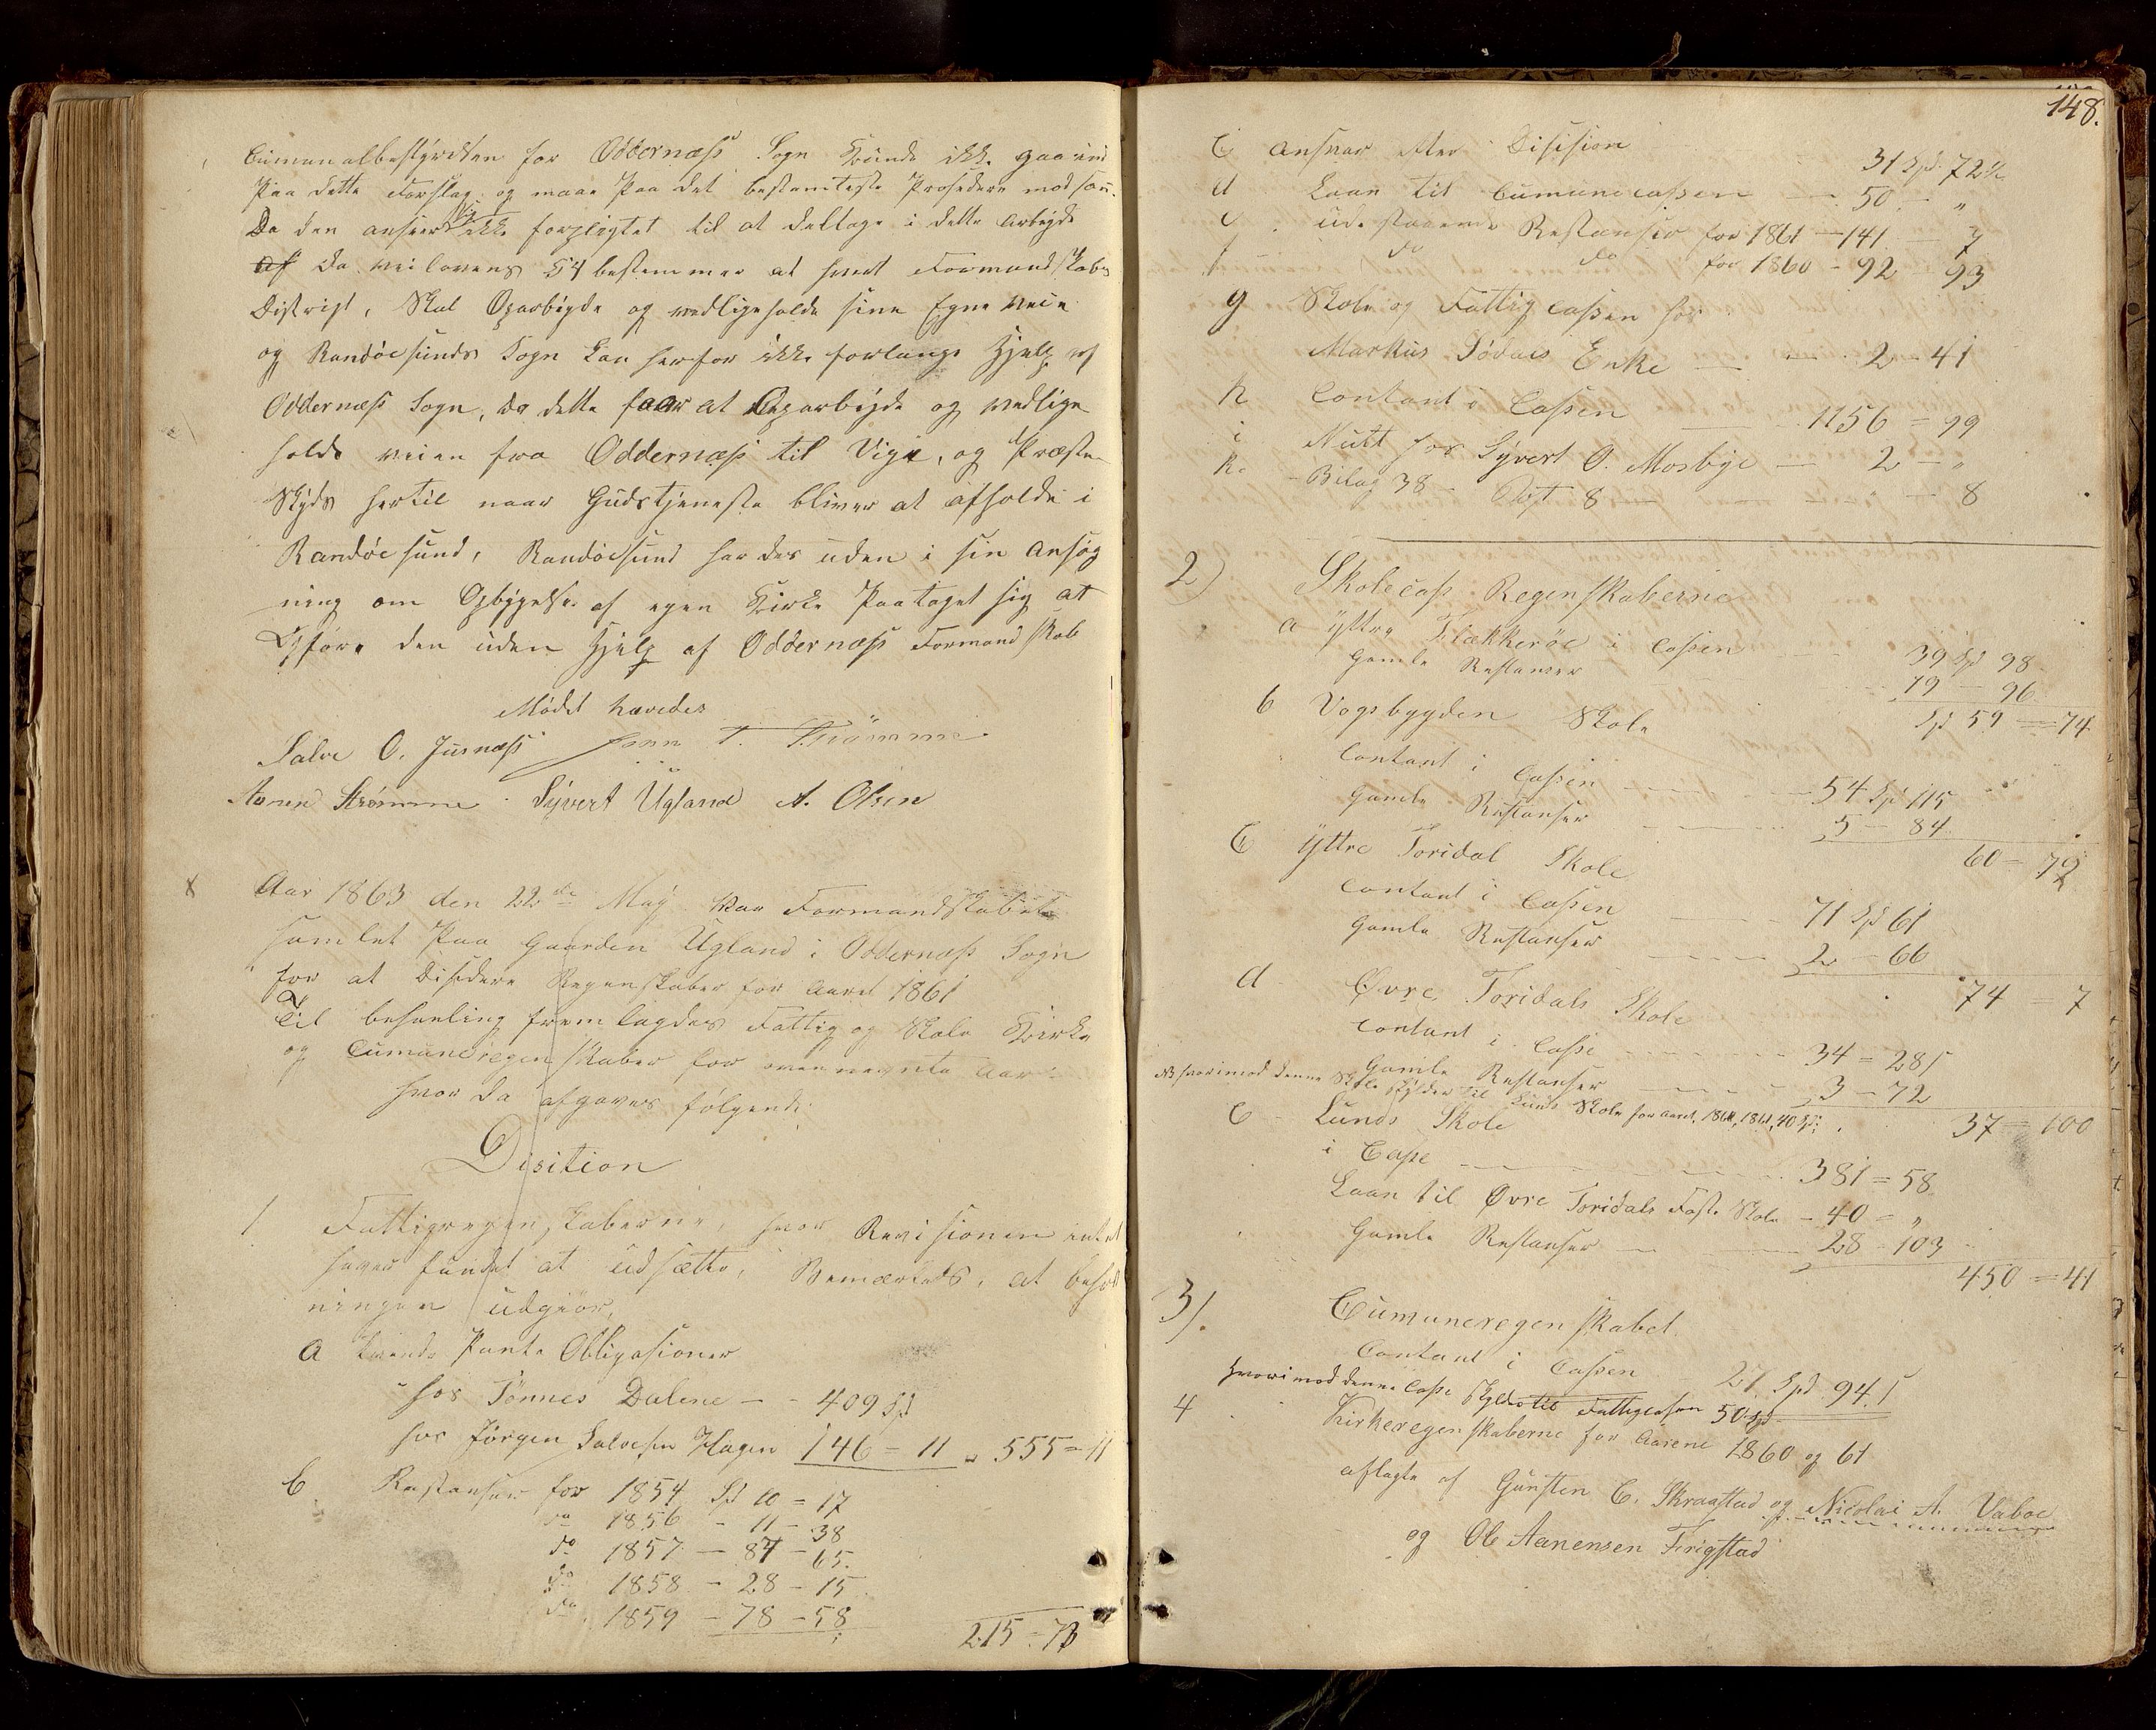 Cumunalbestyrelsen for Oddernæss Sogn Kunde ikke gaa ind
Paa dette Forslag og maae Paa det bestemteste Prosedere mod samme.
Da den anseer sig ikke forpligtet til at deltage i dette Arbeyde
af da Veilovens § 4 bestemmer at hvert Formandskabs
Distrigt, Skal Oparbeyde og vedligeholde sine Egne Veie
og Randøesunds Sogn kan herfor ikke forlange Hjelp af
Oddernæss Sogn, da dette faar at Oparbeyde og vedlige
holde veien fra Oddernæss til Vige, og Præste
Skyds hertil naar Gudstjeneste bliver at afholde i
Randøesund, Randøesund har des uden i sin Ansøg
ning om Opbygelse af egen Kirke Paataget sig at
Opføre den uden Hjelp af Oddernæss Formandskab
Mødet hævedes
Salve O. Jusnæss T. Strömme
Aanen Strømme Syvert Ugland A. Olsen
x Aar 1863 den 22de May var Formandskabet
samlet Paa Gaarden Ugland i Oddernæss Sogn
for at Disidere Regenskaber for Aaret 1861
Til behanling fremlagdes Fattig og Skole Kirke
og Cumuneregenskaber for ovennevnte Aar
hvor da afgaves følgende
Disition
1 Fattigregenskaberne, hvor Revisionen intet
haver fundet at udsætte, Bemærkeds, at behold
ningen udgiør,
a Pante Obligasioner
hos Tönnes Dalene - - 409 Spd
hos Jörgen Salvesen Hagen 146 = 11 " 555 = 11
b Restanser for 1854 Spd 10 = 17
do 1856 - 11 - 38
do 1857 - 87 - 65
do 1858 - 28 - 15
do 1859 - 78 - 58
215 = 73
148.
C Ansvar efter Disision 31 Spd 72½
d Laan til Cumunecassen - 50 - "
e udestaaende Restanser for 1861 - 141 - 7
f - do do for 1860 - 92 - 93
g Skole og Fattig cassen hos
Markus Södals Enke - - 2 - 41
h Contant i Cassen - 1156 = 99
i Nutt hos Syvert O. Mosbye - 2 - "
k. - Bilag 38 - Post 8 - - " - 8
2) Skolecass Regenskaberne
a yttre Flækkeröe i Cassen - 39 Spd 98
Gamle Restanser 19 - 96
Spd 59 = 74
b Vogsbygden Skole
Contant i Cassen - 54 Spd 115
Gamle Restanser - 5 - 84
60 - 79
C Yttre Toridal Skole
Contant i Cassen - 71 Spd 61
Gamle Restanser - 2 - 66
74 = 7
d Øvre Toridals Skole
Contant i Casse - 34 = 28
Gamle Restanser - 3 - 72
NB hvorimod denne Skole skylder til Lunds Skole for Aaret 1860, 1861, 40 Spd
37 = 100
e Lunds Skole
i Casse - 381 = 58
Laan til Øvre Toridals Faste Skole - 40 = "
Gamle Restanser - 28 - 103
450 = 41
3). Cumuneregenskabet
Contant i Cassen 27 Spd 94
hvorimod denne Casse skylder til Fattigcassen 50 Spd
4 Kirkeregenskaberne for Aarene 1860 og 61
aflagte af Gunsten C. Skraastad og Nicolai A. Vaboe
og Ole Aanensen Frigstad